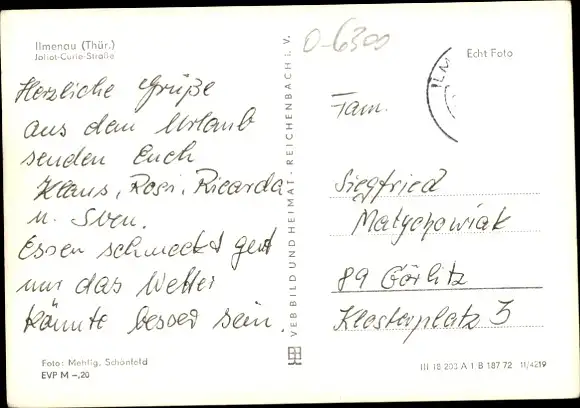 Ilmenau (Thür.)
Joliot-Curie-Straße
Herzliche Grüße
aus dem Urlaub
senden Euch
Klaus, Rosi, Ricarda
u. Sven.
Essen schmeckt gut
nur das Wetter
könnte besser sein.
Foto: Mehlig, Schönfeld
EVP M -,20
VEB BILD UND HEIMAT - REICHENBACH i. V.
O-6300
Echt Foto
ILM
Fam.
Siegfried
Matychowiak
89 Görlitz
Klosterplatz 3
III 18 203 A 1 B 187 72 11/4219